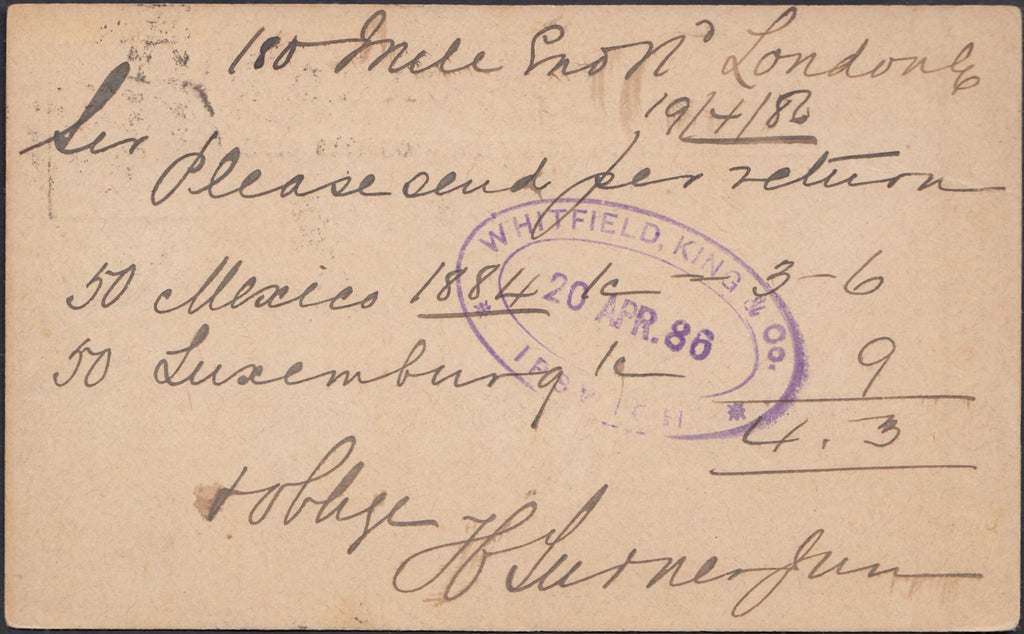 180 Mile End Rd London E
19/4/86
Sir
Please send per return
50 Mexico 1884 1c - 3-6
50 Luxemburg 1c 9
4.3
+ oblige
H Turner Junr
WHITFIELD, KING & Co.
20 APR. 86
IPSWICH